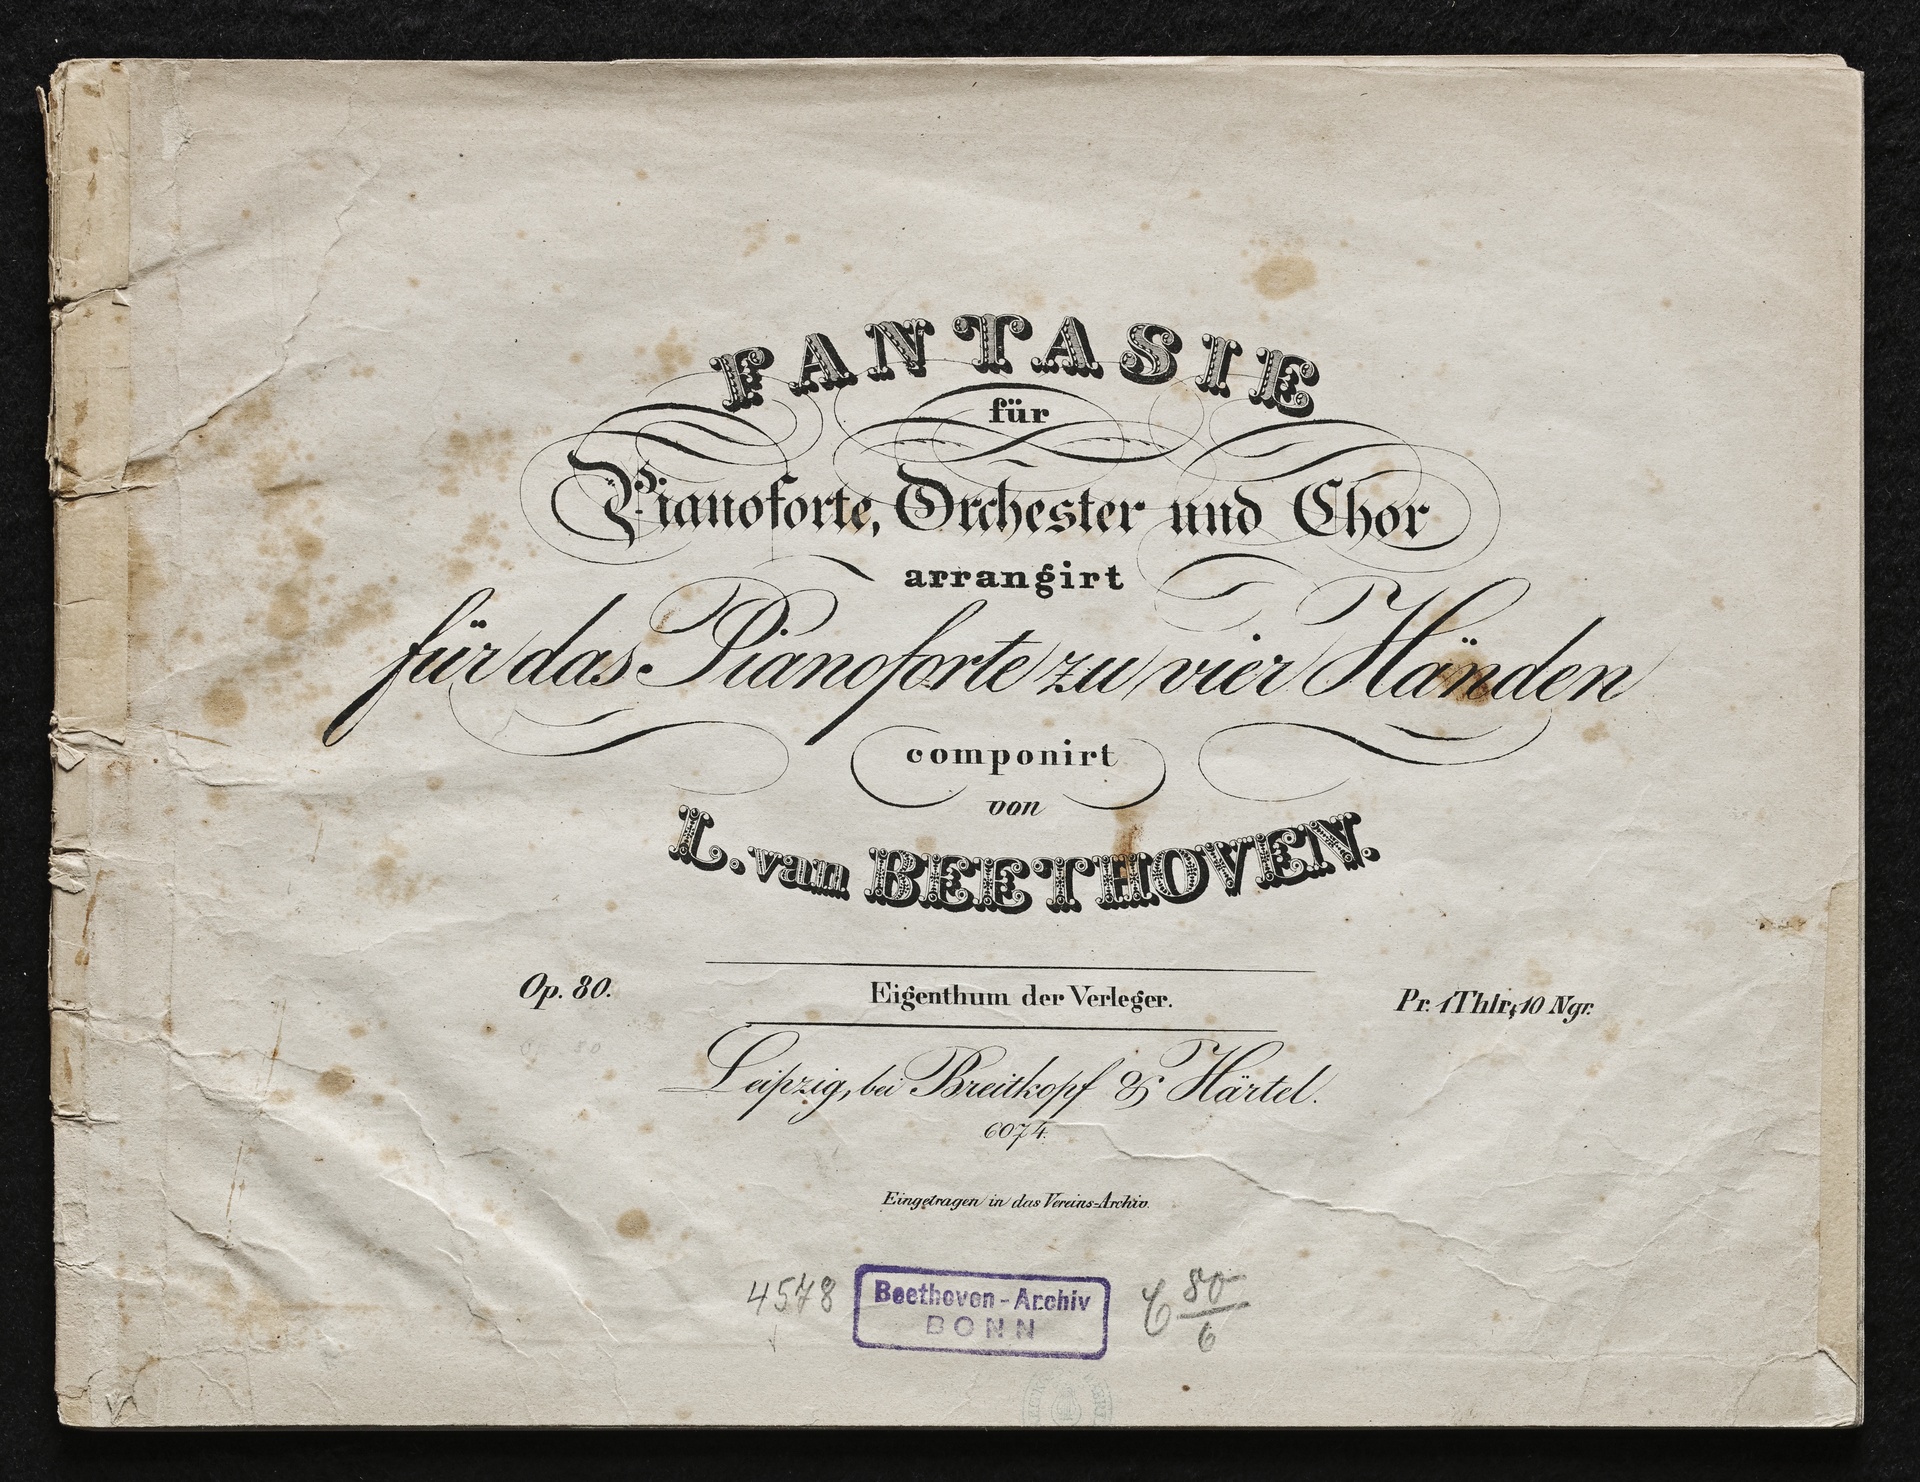 FANTASIE
für
Pianoforte, Orchester und Chor
arrangirt
für das Pianoforte zu vier Händen
componirt
von
L. van BEETHOVEN.
Op. 80.
Eigenthum der Verleger.
Pr. 1 Thlr. 10 Ngr.
Leipzig, bei Breitkopf & Härtel.
6074.
Eingetragen in das Vereins-Archiv.
4578
Beethoven-Archiv
BONN
C 80/6